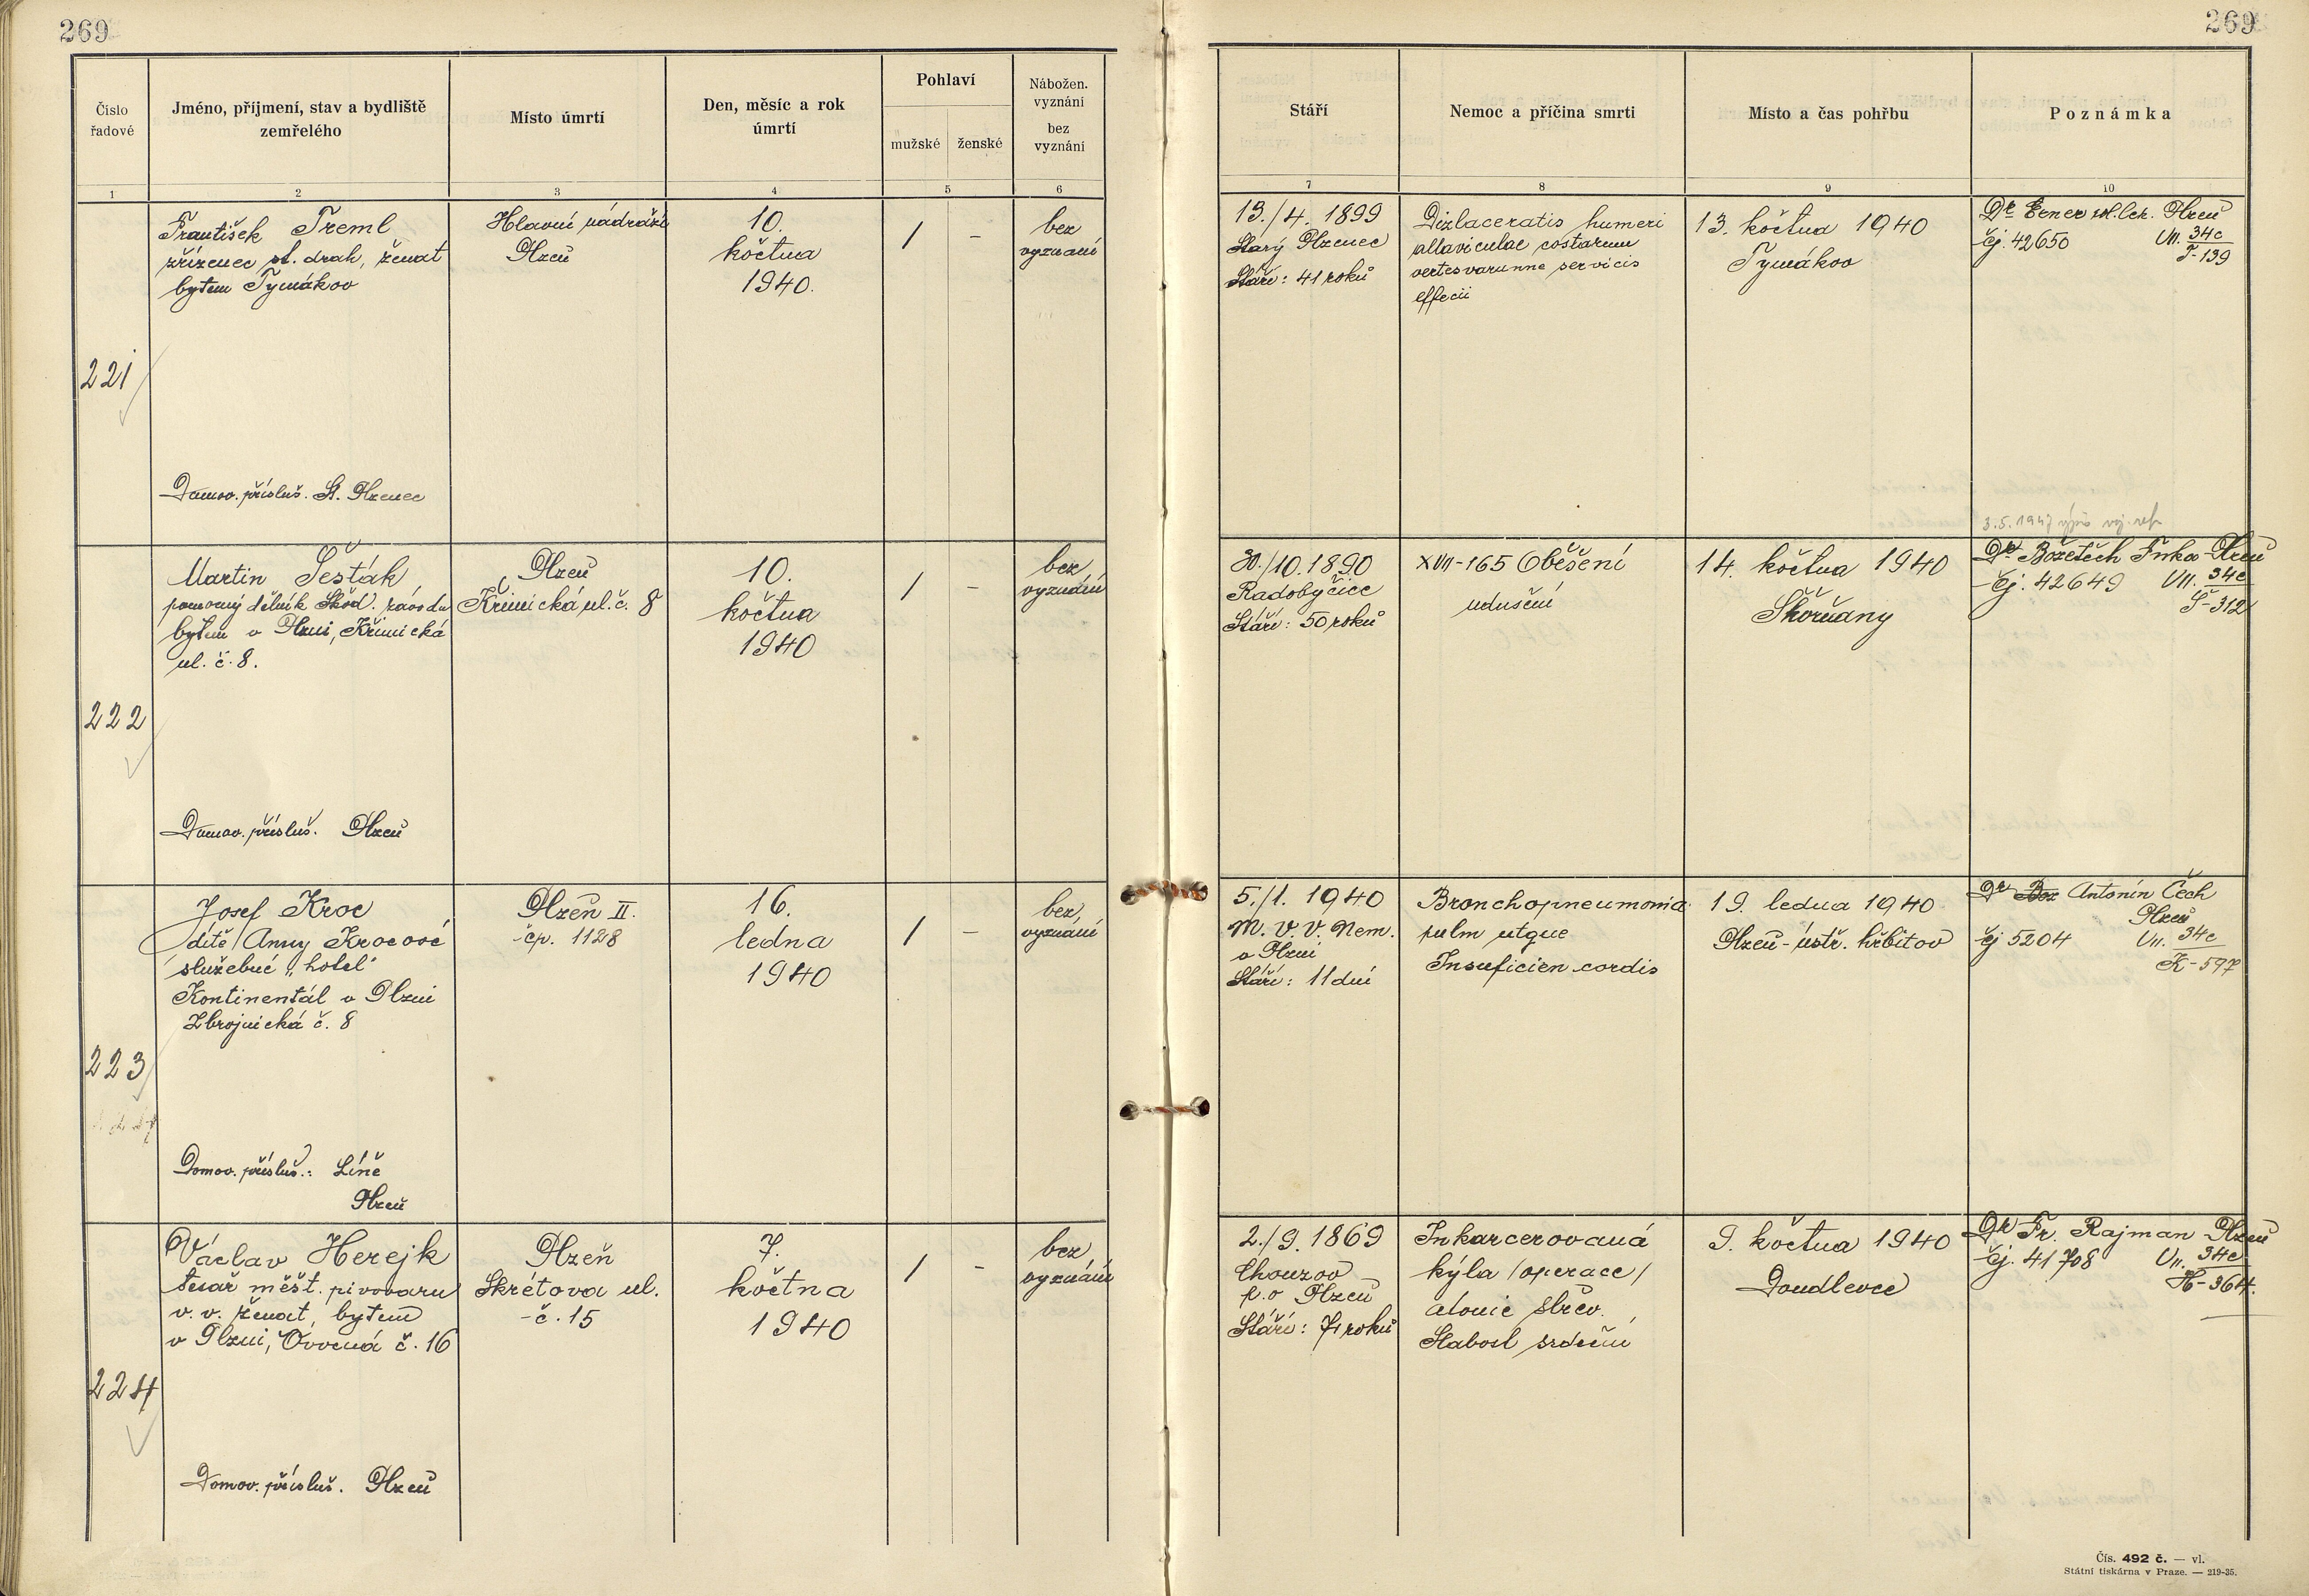 269
269
Číslo
řadové
Jméno, příjmení, stav a bydliště
zemřelého
Místo úmrtí
Den, měsíc a rok
úmrtí
Pohlaví
mužské
ženské
Nábožen.
vyznání
bez
vyznání
Stáří
Nemoc a příčina smrti
Místo a čas pohřbu
Poznámka
1
2
3
4
5
6
7
8
9
10
221
František Treml
zřízenec st. drah, ženat
bytem Tymákov
Domov. přísluš. St. Plzenec
Hlavní nádraží
Plzeň
10.
května
1940.
/
-
bez
vyznání
13./4. 1899
Starý Plzenec
Stáří: 41 roků
Dizlaceratis humeri
allaviculae costarum
vertesvarumne servicis
effecii
13. května 1940
Tymákov
Dr. Eener pol. lek. Plzeň
čj. 42650 VII. 34c
T-139
222
Martin Šesták,
pomocný dělník Škod. závodu
bytem v Plzni, Křimická
ul. č. 8.
Domov. přísluš. Plzeň
Plzeň
Křimická ul. č. 8
10.
května
1940
/
-
bez
vyznání
30./10. 1890
Radobyčice
Stáří: 50 roků
XVII-165 Oběšení
udušení
14. května 1940
Skvrňany
3.5.1947
Dr Božetěch Fnka Plzeň
čj. 42649 VII. 34c
Š-312
223
Josef Kroc
dítě/Anny Krocové
služebné „hotel"
Kontinentál v Plzni
Zbrojnická č. 8
Domov. přísluš.: Líně
Plzeň
Plzeň II.
čp. 1128
16.
ledna
1940
/
-
bez
vyznání
5./1. 1940
M. V. V. Nem.
v Plzni
Stáří: 11 dní
Bronchopneumonia
pulm utque
Insuficien cordis
19. ledna 1940
Plzeň - ústř. hřbitov
Dr Boz Antonín Čech
Plzeň
čj 5204 VII. 34c
K-597
224
Václav Herejk
tesař měšt. pivovaru
v. v. ženat, bytem
v Plzni, Ovocná č. 16
Domov. přísluš. Plzeň
Plzeň
Skrétova ul.
č. 15
7.
května
1940
/
-
bez
vyznání
2./9. 1869
Chouzov
p. o Plzeň
Stáří: 71 roků
Inkarcerovaná
kýla /operace/
atonie střev.
Slabost srdeční
9. května 1940
Doudlevce
Dr Fr. Rajman Plzeň
čj. 41708 VII. 34c
H-364.
Čís. 492 č. — vl.
Státní tiskárna v Praze. — 219-35.